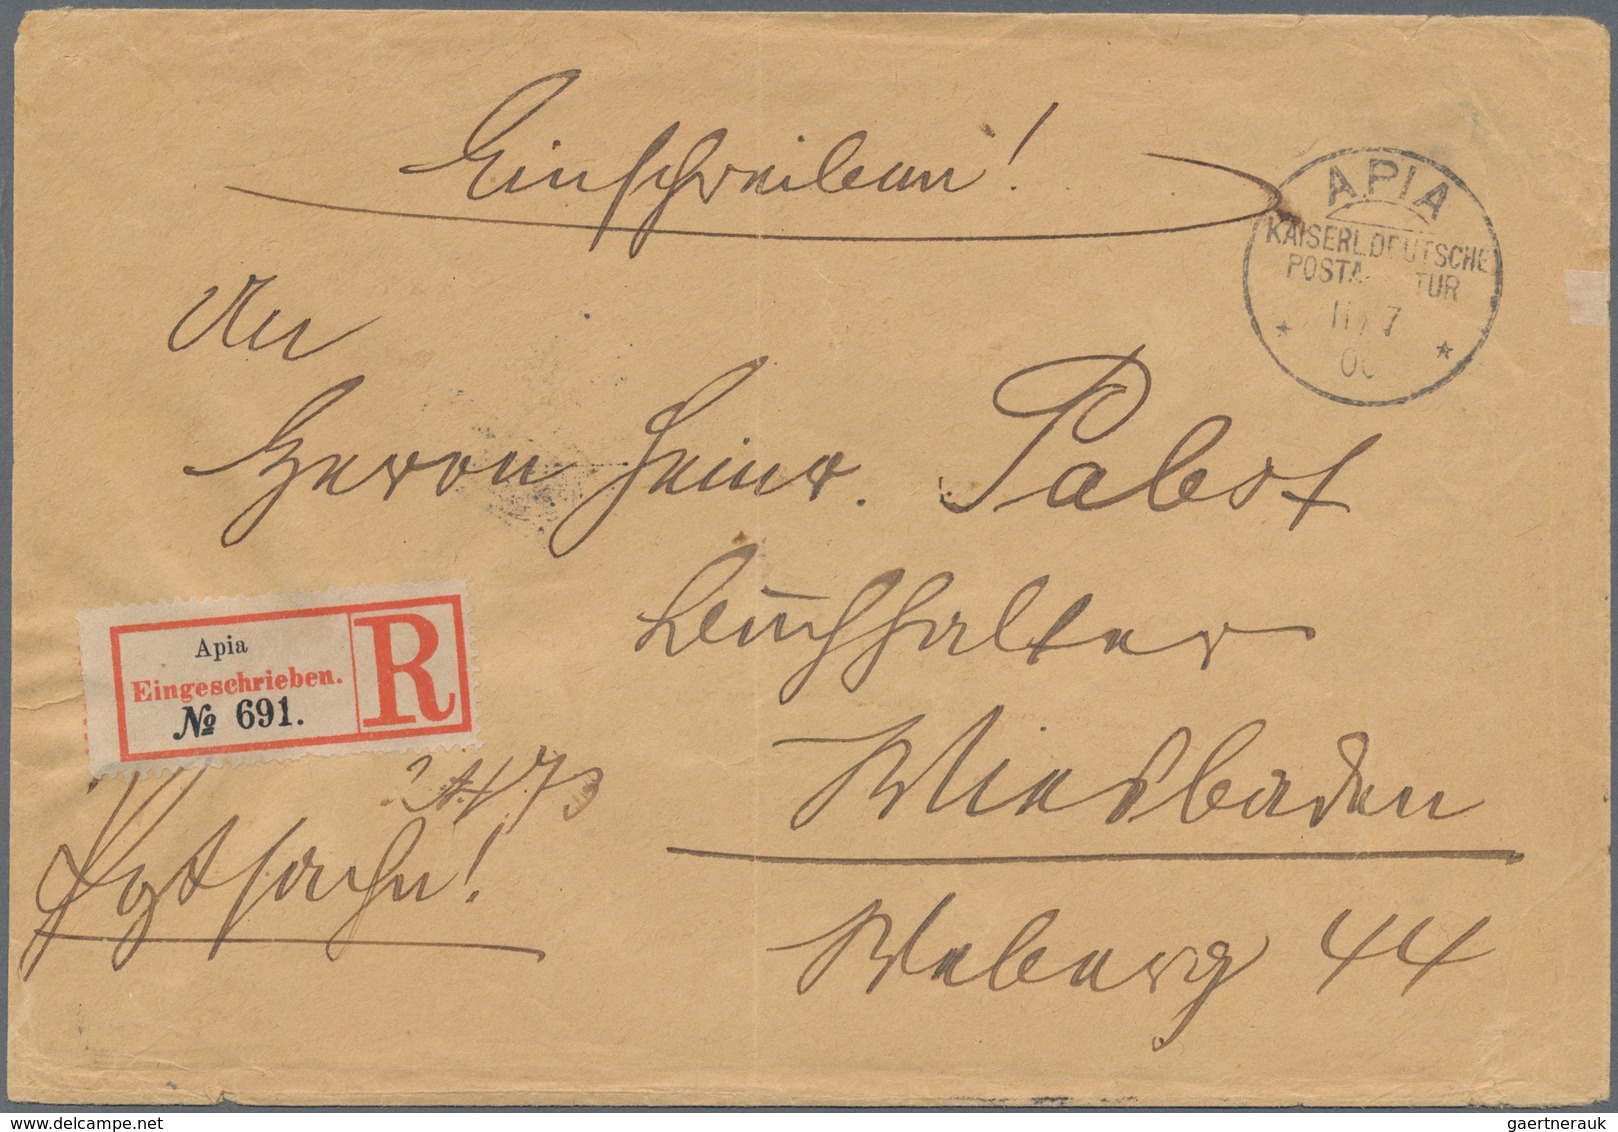 Einschreiben!
APIA
KAISERL. DEUTSCHE
POSTA TUR
11 7
00
An
Herrn Heinr. Pabst
Buchhalter
Wiesbaden
Weberg 44
Apia
Eingeschrieben.
№ 691.
R
Postsache!
gaertnerauk